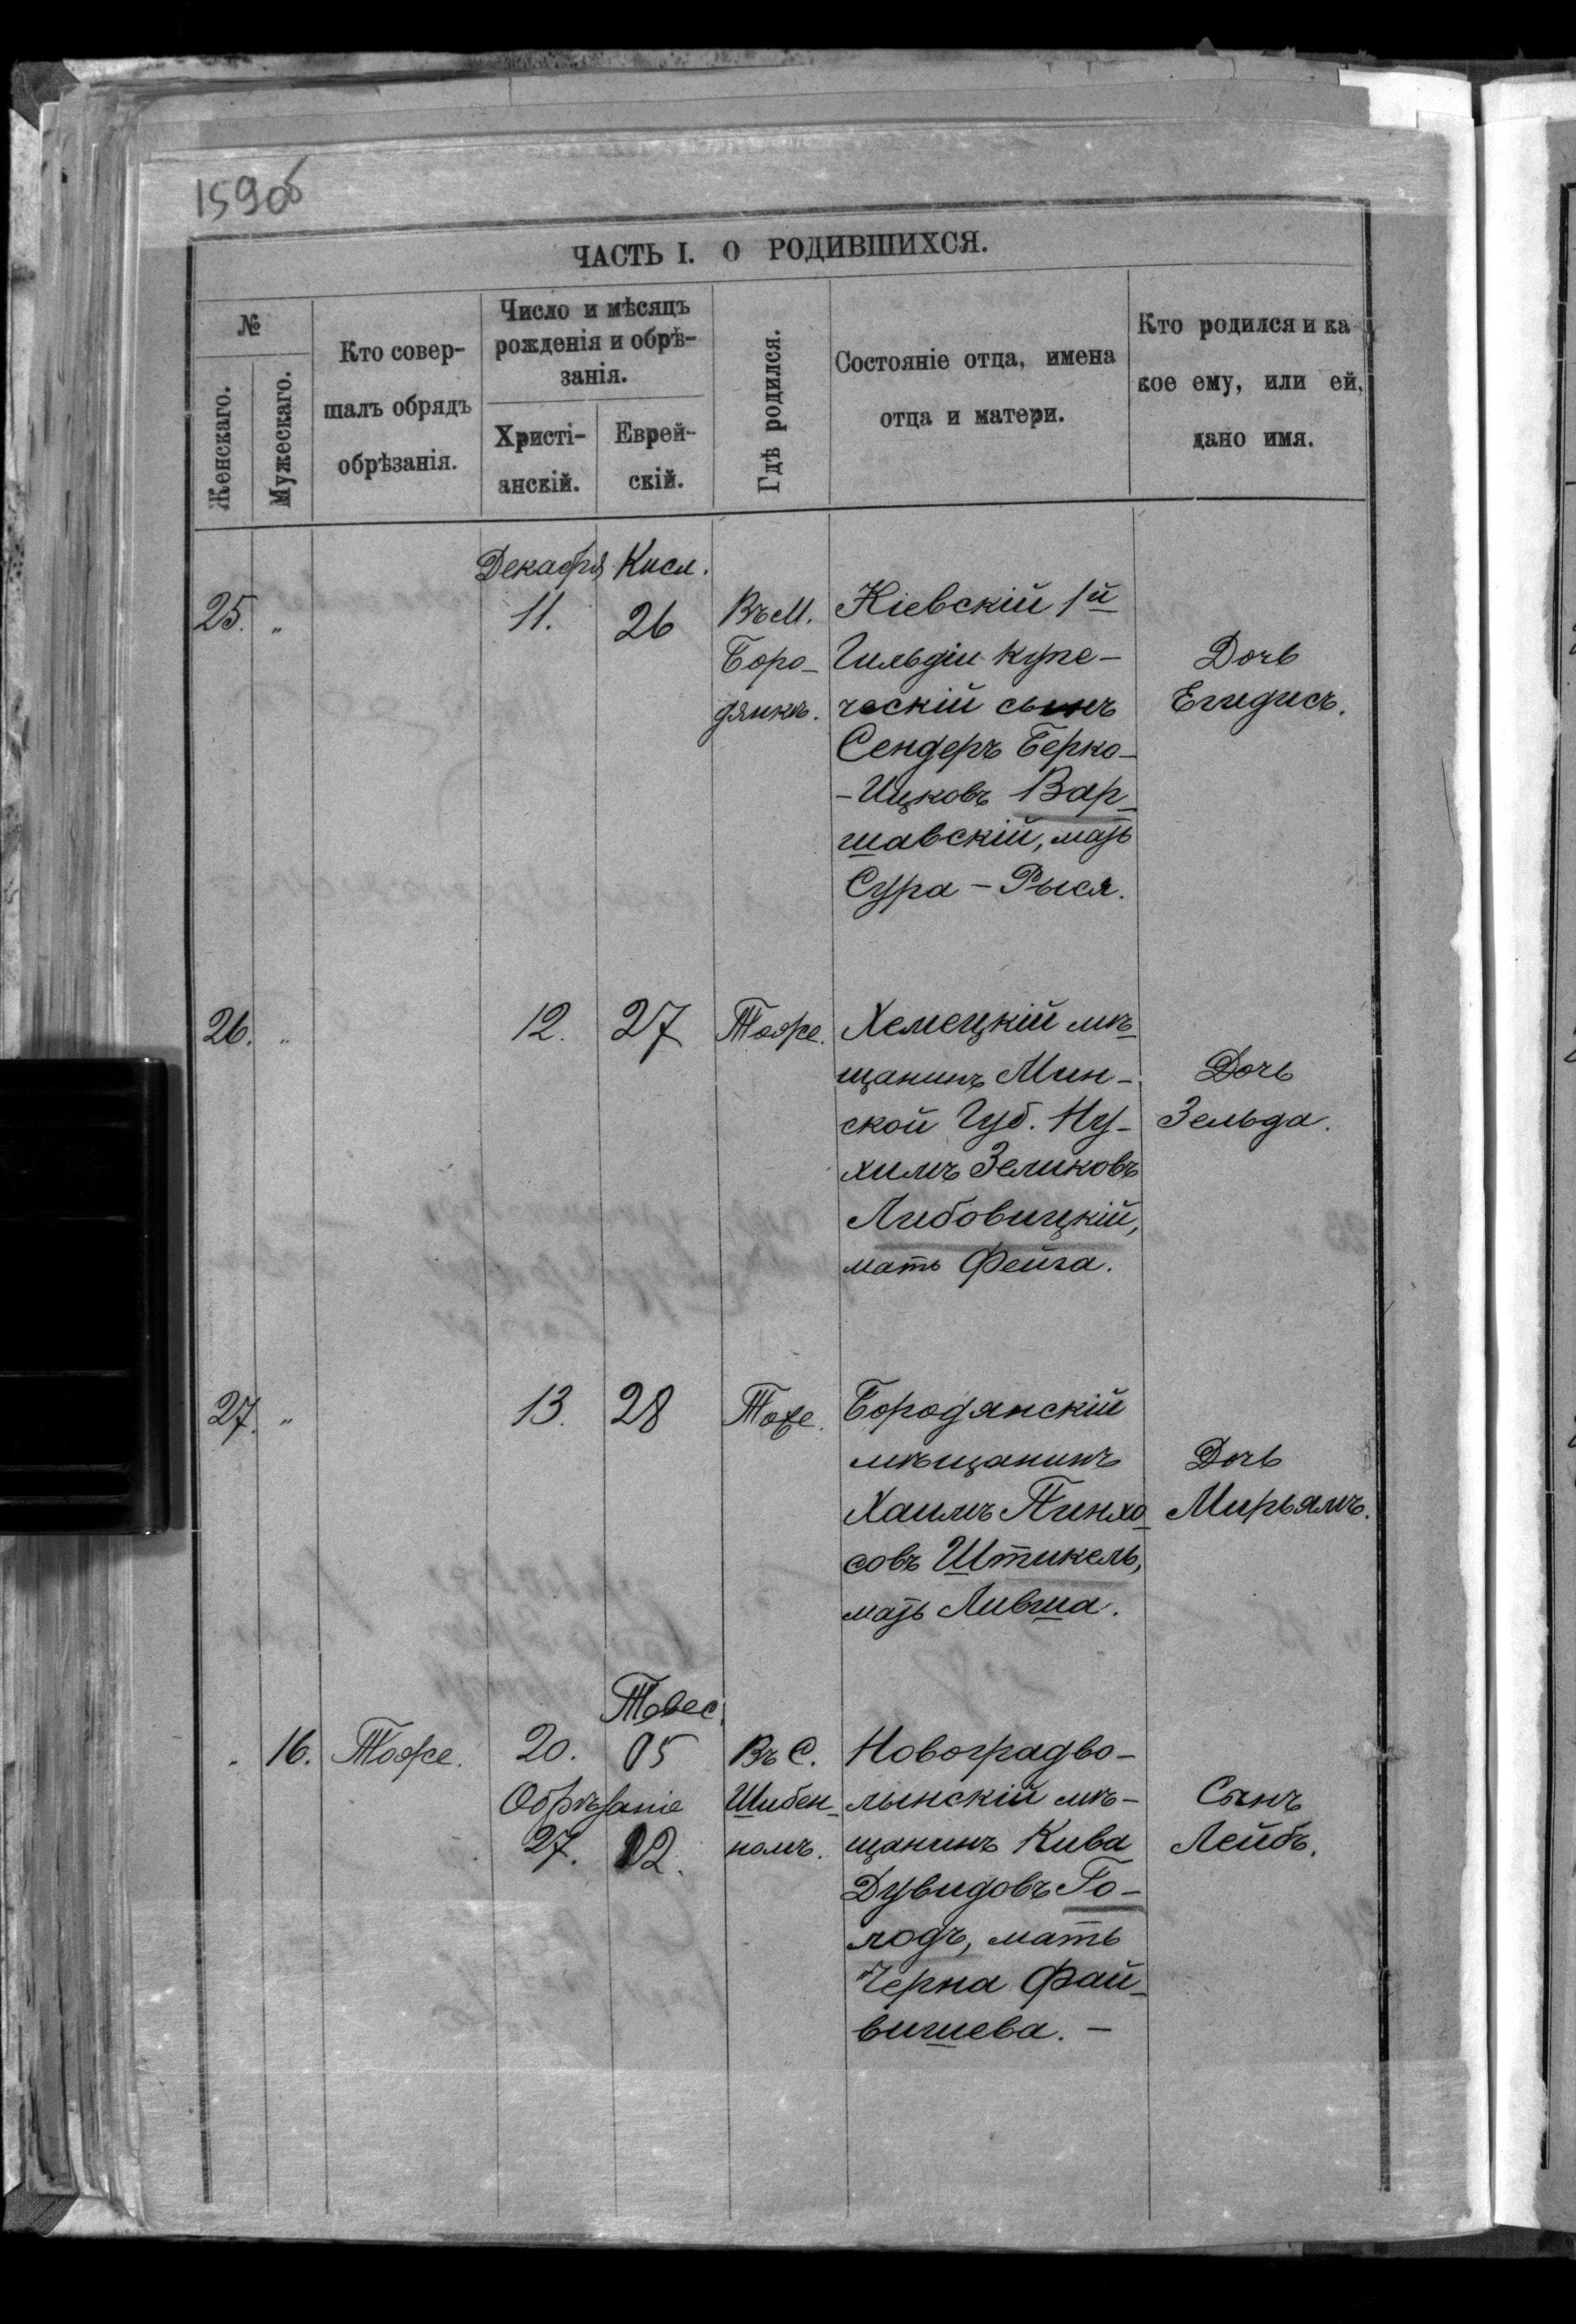 159об
ЧАСТЬ I. О РОДИВШИХСЯ.
№
Женскаго.
Мужескаго.
Кто совер-
шалъ обрядъ
обрѣзанія.
Число и мѣсяцъ
рожденія и обрѣ-
занія.
Христі-
анскій.
Еврей-
скій.
Гдѣ родился.
Состояніе отца, имена
отца и матери.
Кто родился и ка
кое ему, или ей,
дано имя.
Декабря Кисл.
25. „ 11. 26
Въ М.
Боро-
дянкѣ.
Кіевскій 1й
Гильдіи купе-
ческій сынъ
Сендеръ Берко-
-Ицковъ Вар-
шавскій, мать
Сура - Рыся.
Дочь
Егидисъ.
26. „ 12. 27 Тоже.
Хемецкій мѣ
щанинъ Мин-
ской Губ. Ну-
химъ Зеликовъ
Либовицкій,
мать Фейга.
Дочь
Зельда.
27. „ 13. 28 Тоже.
Бородянскій
мѣщанинъ
Хаимъ Пинхо
совъ Штикель,
мать Ливша.
Дочь
Мирьямъ.
Тевес.
„ 16. Тоже. 20. 05
Обрѣзаніе
27. 12.
Въ С.
Шибен-
номъ.
Новоградво-
лынскій мѣ-
щанинъ Кива
Дувидовъ Го-
лодъ, мать
Черна Фай-
вишева. -
Сынъ
Лейбъ.